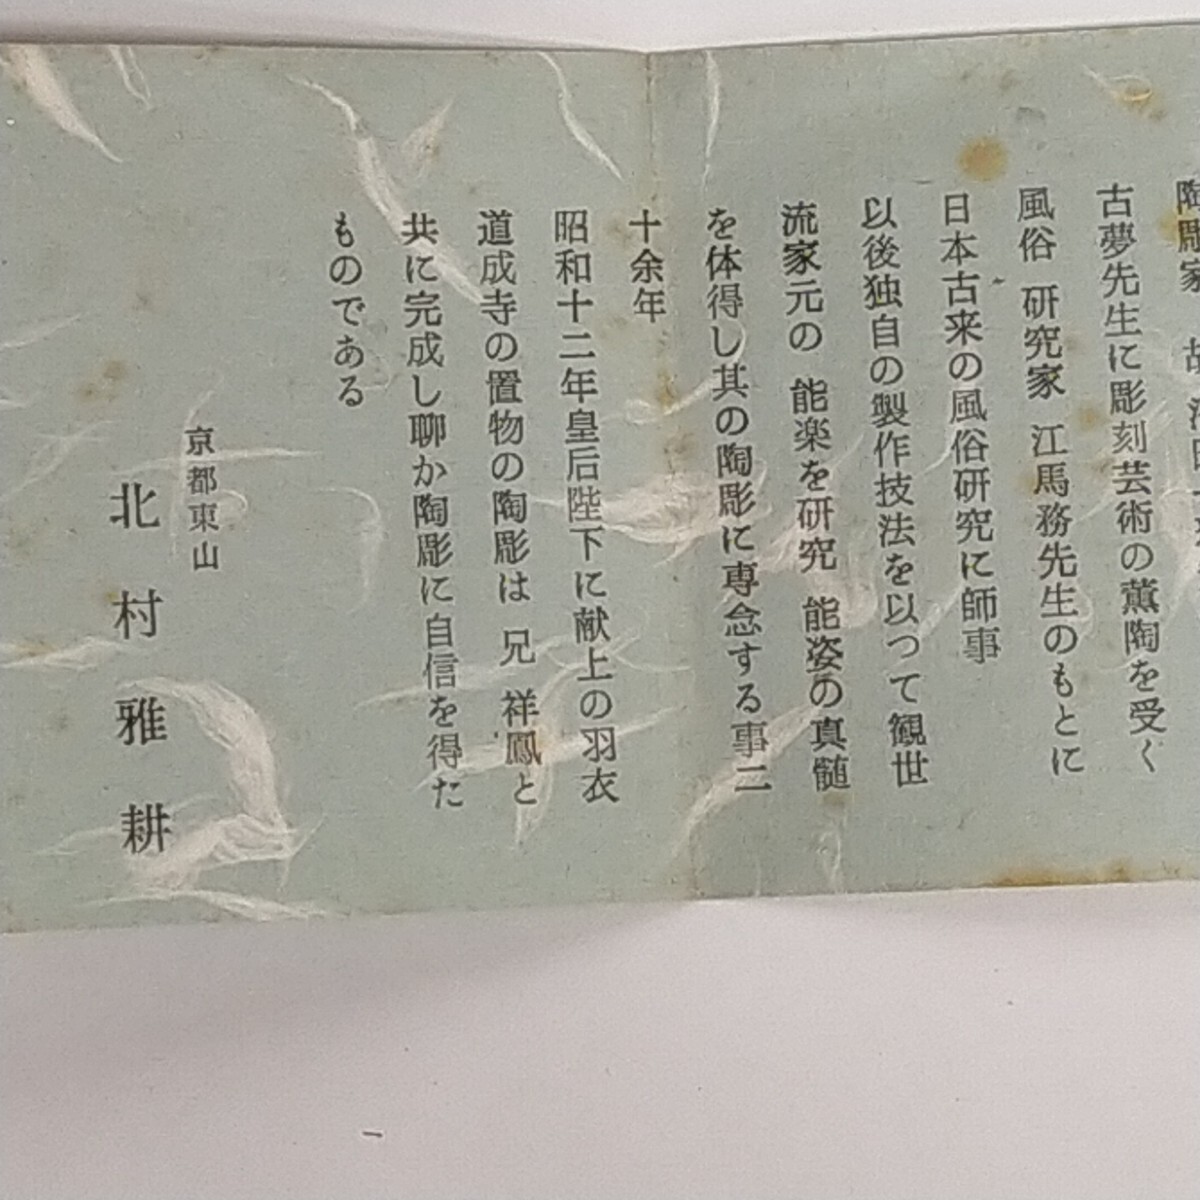 陶彫家 故
古夢先生に彫刻芸術の薫陶を受く
風俗 研究家 江馬務先生のもとに
日本古来の風俗研究に師事
以後独自の製作技法を以つて観世
流家元の 能楽を研究 能姿の真髄
を体得し其の陶彫に専念する事二
十余年
昭和十二年皇后陛下に献上の羽衣
道成寺の置物の陶彫は 兄 祥鳳と
共に完成し聊か陶彫に自信を得た
ものである
京都東山
北村雅耕